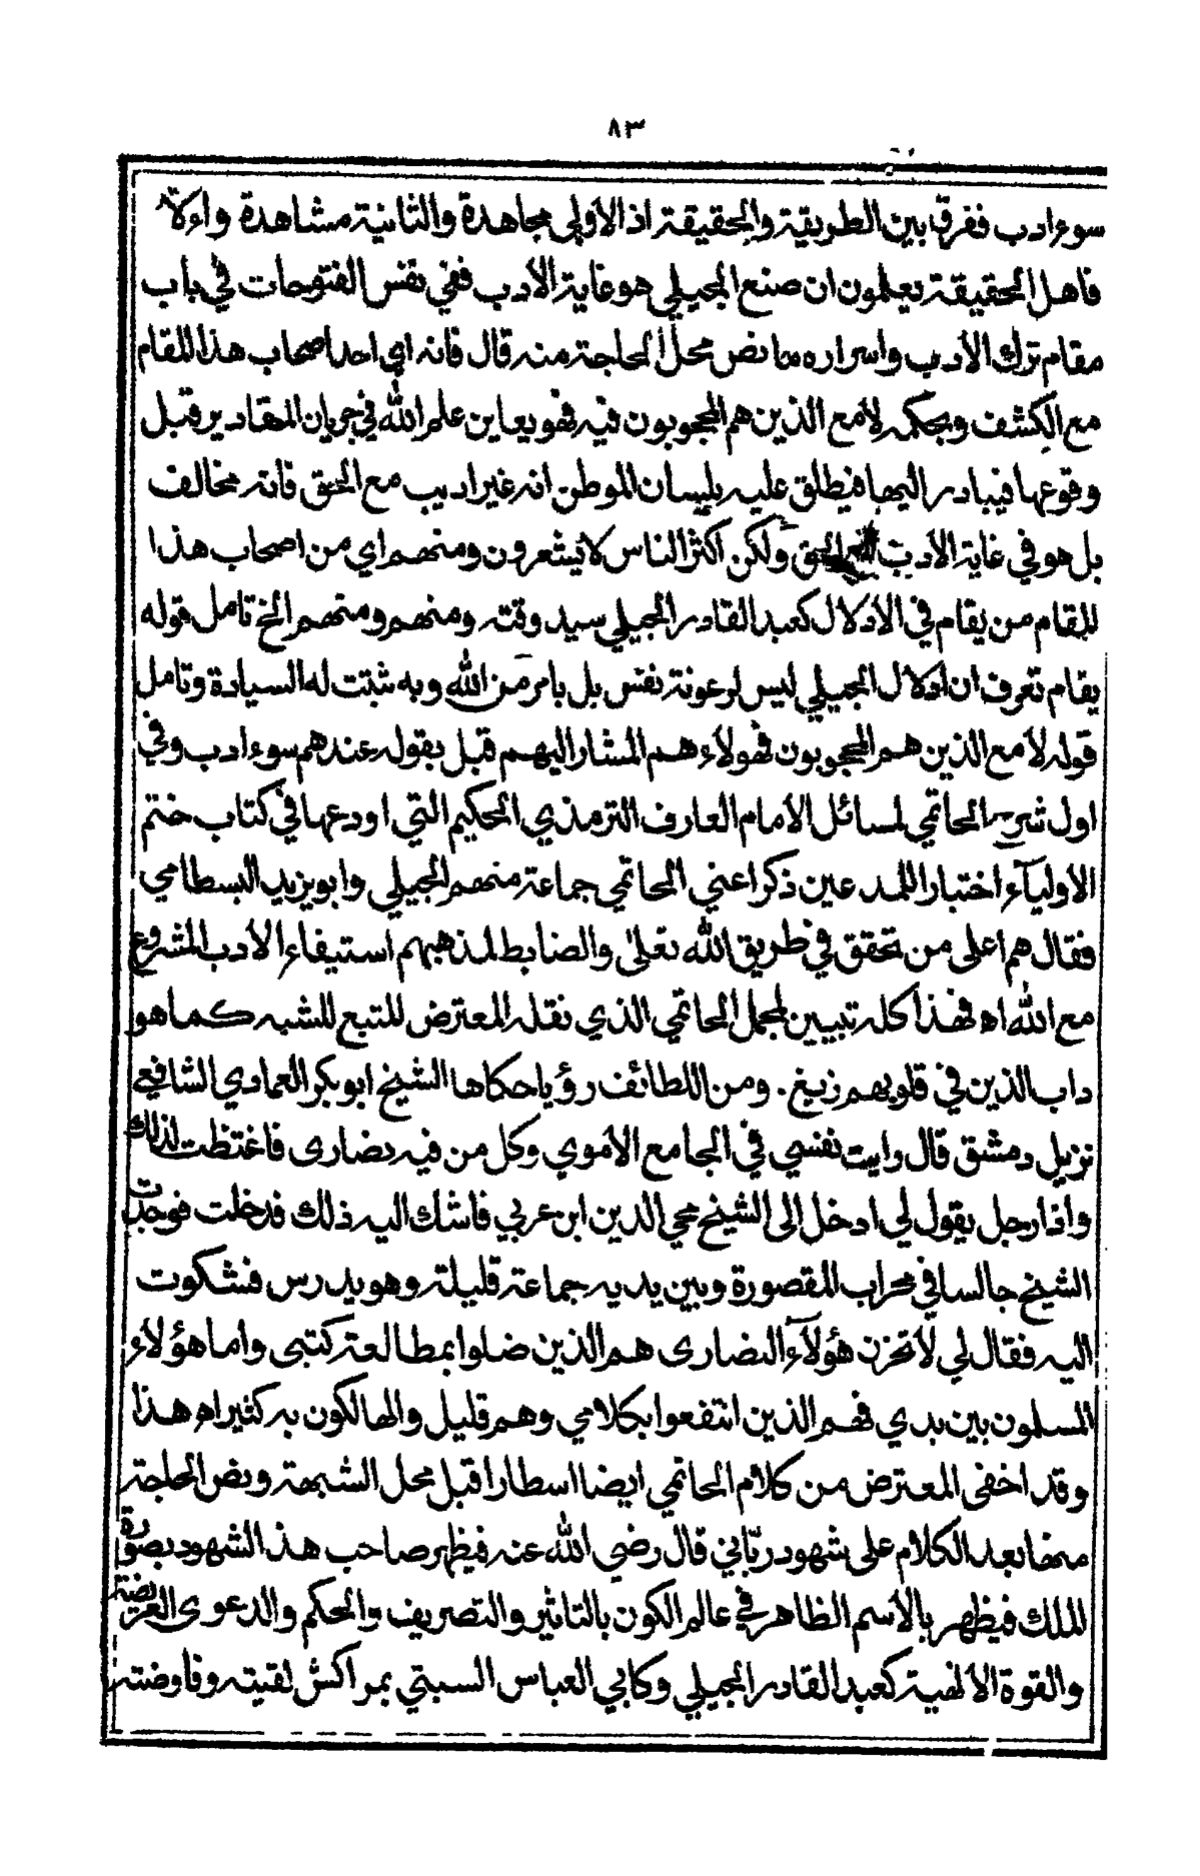 ٨٣
سوء ادب ففرق بين الطريقة والحقيقة اذ الأولى مجاهدة والثانية مشاهدة
فاهل الحقيقة يعلمون ان صنع الجيلي هو غاية الأدب ففي نفس الفتوحات في باب
مقام ترك الأدب واسراره ما نص محل الحاجة منه قال فانه اي احد اصحاب هذا المقام
مع الكشف وبحكمه لا مع الذين هم المحجوبون فيه فهو يعاين علم الله في جريان المقادير قبل
وقوعها فيبادر اليها فيطلق عليه بلسان الموطن انه غير اديب مع الحق فانه مخالف
بل هو في غاية الأدب مع الحق ولكن اكثر الناس لا يشعرون ومنهم اي من اصحاب هذا
المقام من يقام في الأدلال كعبد القادر الجيلي سيد وقته ومنهم ومنهم الخ تامل قوله
يقام تعرف ان ادلال الجيلي ليس لرعونة نفس بل بامر من الله وبه ثبتت له السيادة وتامل
قوله لا مع الذين هم المحجوبون فهولاء هم المشار اليهم قبل بقوله عندهم سوء ادب وفي
اول شرح الحاتمي لمسائل الأمام العارف الترمذي الحكيم التي اودعها في كتاب ختم
الأولياء اختبارا للمدعين ذكر اعني الحاتمي جماعة منهم الجيلي وابو يزيد البسطامي
فقال هم اعلى من تحقق في طريق الله تعالى والضابط لمذهبهم استيفاء الأدب المشروع
مع الله اه فهذا كله تبيين لمجمل الحاتمي الذي نقله المعترض المتبع للشبه كما هو
داب الذين في قلوبهم زيغ. ومن اللطائف رؤيا حكاها الشيخ ابو بكر العمادي الشافعي
نزيل دمشق قال رايت نفسي في الجامع الأموي وكل من فيه نصارى فاغتظت لذلك
واذا رجل يقول لي ادخل الى الشيخ محي الدين ابن عربي فاشك اليه ذلك فدخلت فوجدت
الشيخ جالسا في محراب المقصورة وبين يديه جماعة قليلة وهو يدرس فشكوت
اليه فقال لي لا تحزن هؤلاء النصارى هم الذين ضلوا بمطالعة كتبى واما هؤلاء
المسلمون بين يدي فهم الذين انتفعوا بكلامي وهم قليل والهالكون به كثير اه هذا
وقد اخفى المعترض من كلام الحاتمي ايضا اسطارا قبل محل الشبهة ونص الحاجة
منها بعد الكلام على شهود رباني قال رضي الله عنه فيظهر صاحب هذا الشهود بصورة
الملك فيظهر بالأسم الظاهر في عالم الكون بالتاثير والتصريف والحكم والدعوى العريضة
والقوة الألهية كعبد القادر الجيلي وكابي العباس السبتي بمراكش لقيته وفاوضته